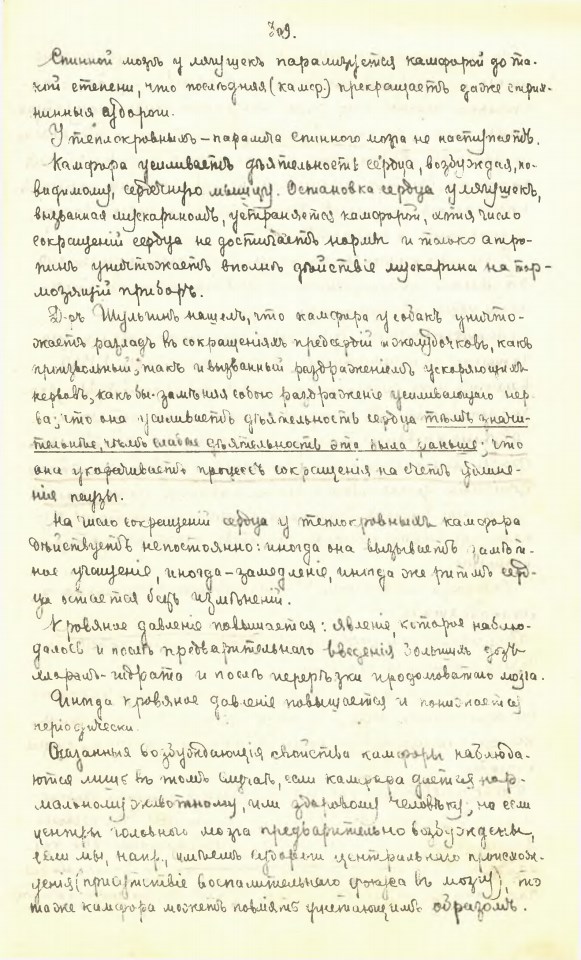 309.
Спинной мозгъ у лягушекъ парализуется камфорой до та-
кой степени, что последняя (камф.) прекращаетъ даже стрих-
нинныя судороги.
У теплокровныхъ – паралича спинного мозга не наступаетъ.
Камфора усиливаетъ дѣятельность сердца, возбуждая, по-
видимому, сердечную мышцу. Остановка сердца у лягушекъ,
вызванная мускариномъ, устраняется камфорой, хотя число
сокращенiй сердца не достигаетъ нормы и только атро-
пинъ уничтожаетъ вполнѣ дѣйствiе мускарина на тор-
мозящiй приборъ.
Д-ръ Шульгинъ нашелъ, что камфора у собакъ уничто-
жаетъ разладъ въ сокращенiяхъ предсердiй и желудочковъ, какъ
произвольный, такъ и вызванный раздраженiемъ ускоряющихъ
нервовъ, какъ бы замѣняя собою раздраженiе усиливающаго нер
ва; что она усиливаетъ дѣятельность сердца тѣмъ значи-
тельнѣе, чѣмъ слабѣе дѣятельность эта была раньше; что
она укорачиваетъ процессъ сокращенiя на счетъ удлине-
нiя паузы.
На число сокращенiй сердца у теплокровныхъ камфора
дѣйствуетъ непостоянно: иногда она вызываетъ замѣт-
ное учащенiе, иногда – замедленiе, иногда же ритмъ серд-
ца остается безъ измѣненiй.
Кровяное давленiе повышается: явленiе, которое наблю-
далось и послѣ предварительнаго введенiя большихъ дозъ
хлоралъ-гидрата и послѣ перерѣзки продолговатаго мозга.
Иногда кровяное давленiе повышается и понижается
перiодически.
Сказанныя возбуждающiя свойства камфоры наблюда-
ются лишь въ томъ случаѣ, если камфора дается нор-
мальному животному, или здоровому человѣку; но если
центры головного мозга предварительно возбуждены,
если мы, напр., имѣемъ судороги центральнаго происхож-
денiя (присутствiе воспалительнаго фокуса въ мозгу), то
та же камфора можетъ повлiять угнетающимъ образомъ.